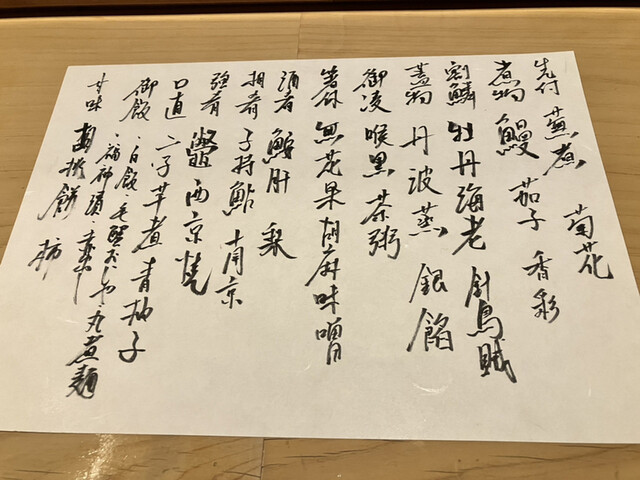 先付 蕪煮 菊花
煮物 鰻 茄子 香彩
割鱗 牡丹海老 針烏賊
蓋物 丹波蒸 銀餡
御凌 喉黒 茶粥
箸休 無花果胡麻味噌
酒肴 鮟肝 梨
相肴 子持鮎 南京
強肴 鼈 西京焼
口直 二子芋煮 青柚子
御飯 ・白飯・毛蟹
・福神漬・・丸煮麺
甘味 餅 柿